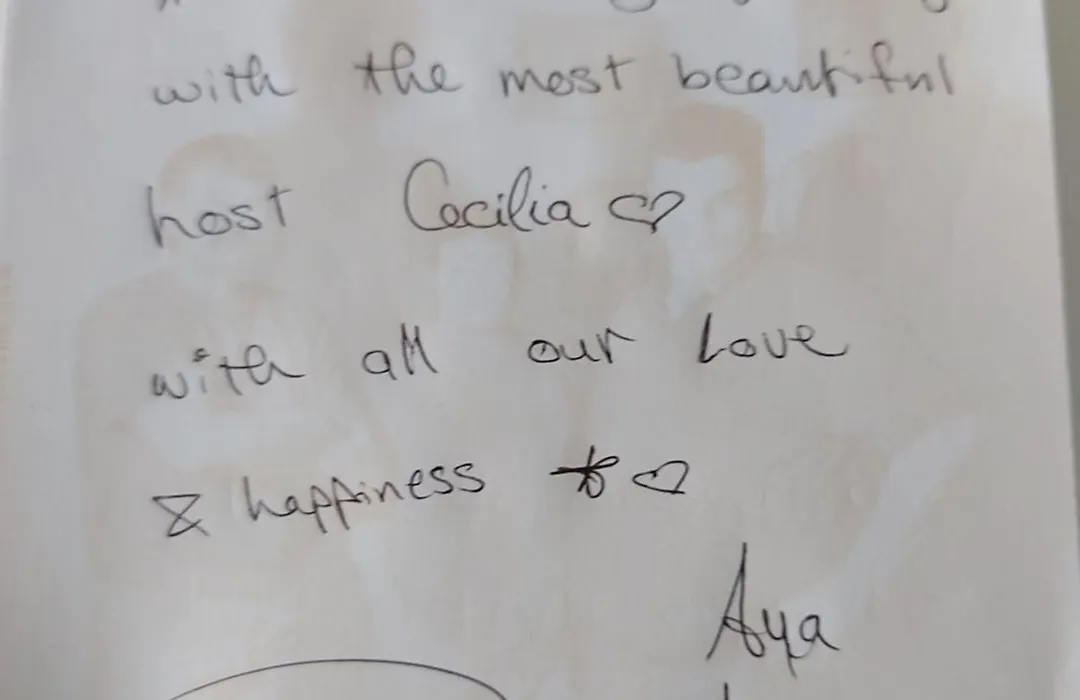 with the most beautiful
host Cecilia ♡
with all our Love
& happiness ♡
Aya